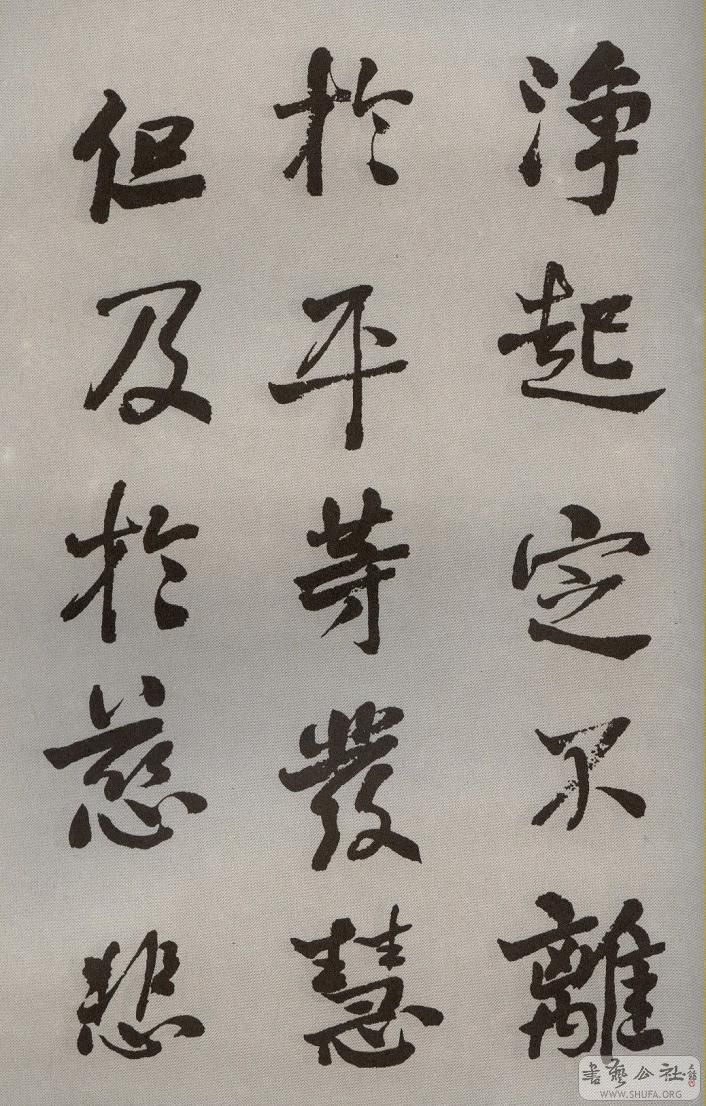 淨起定不離
於平等發慧
但及於慈悲
書藝公社
WWW.SHUFA.ORG